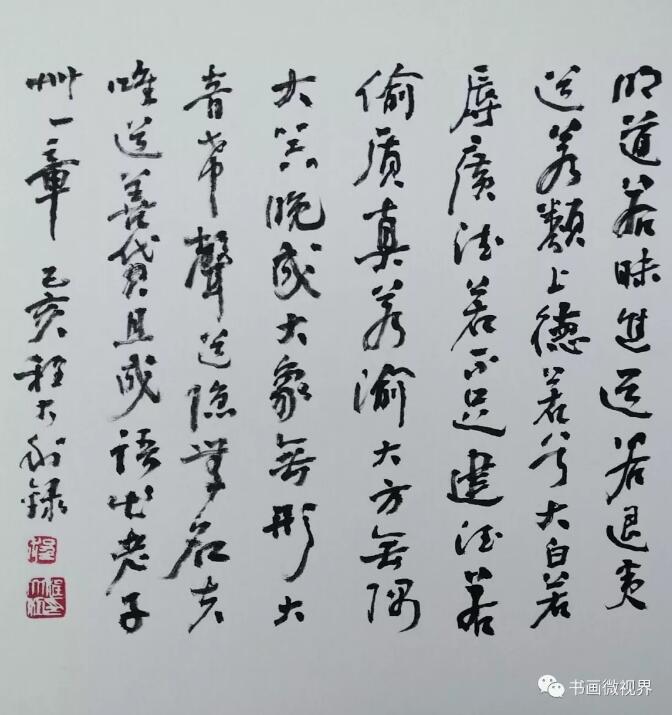 明道若昧進道若退夷
道若類上德若谷大白若
辱廣德若不足建德若
偷質真若渝大方無隅
大器晚成大象無形大
音希聲道隱無名夫
唯道善貸且成語出老子
卌一章 己亥程大利錄
书画微视界